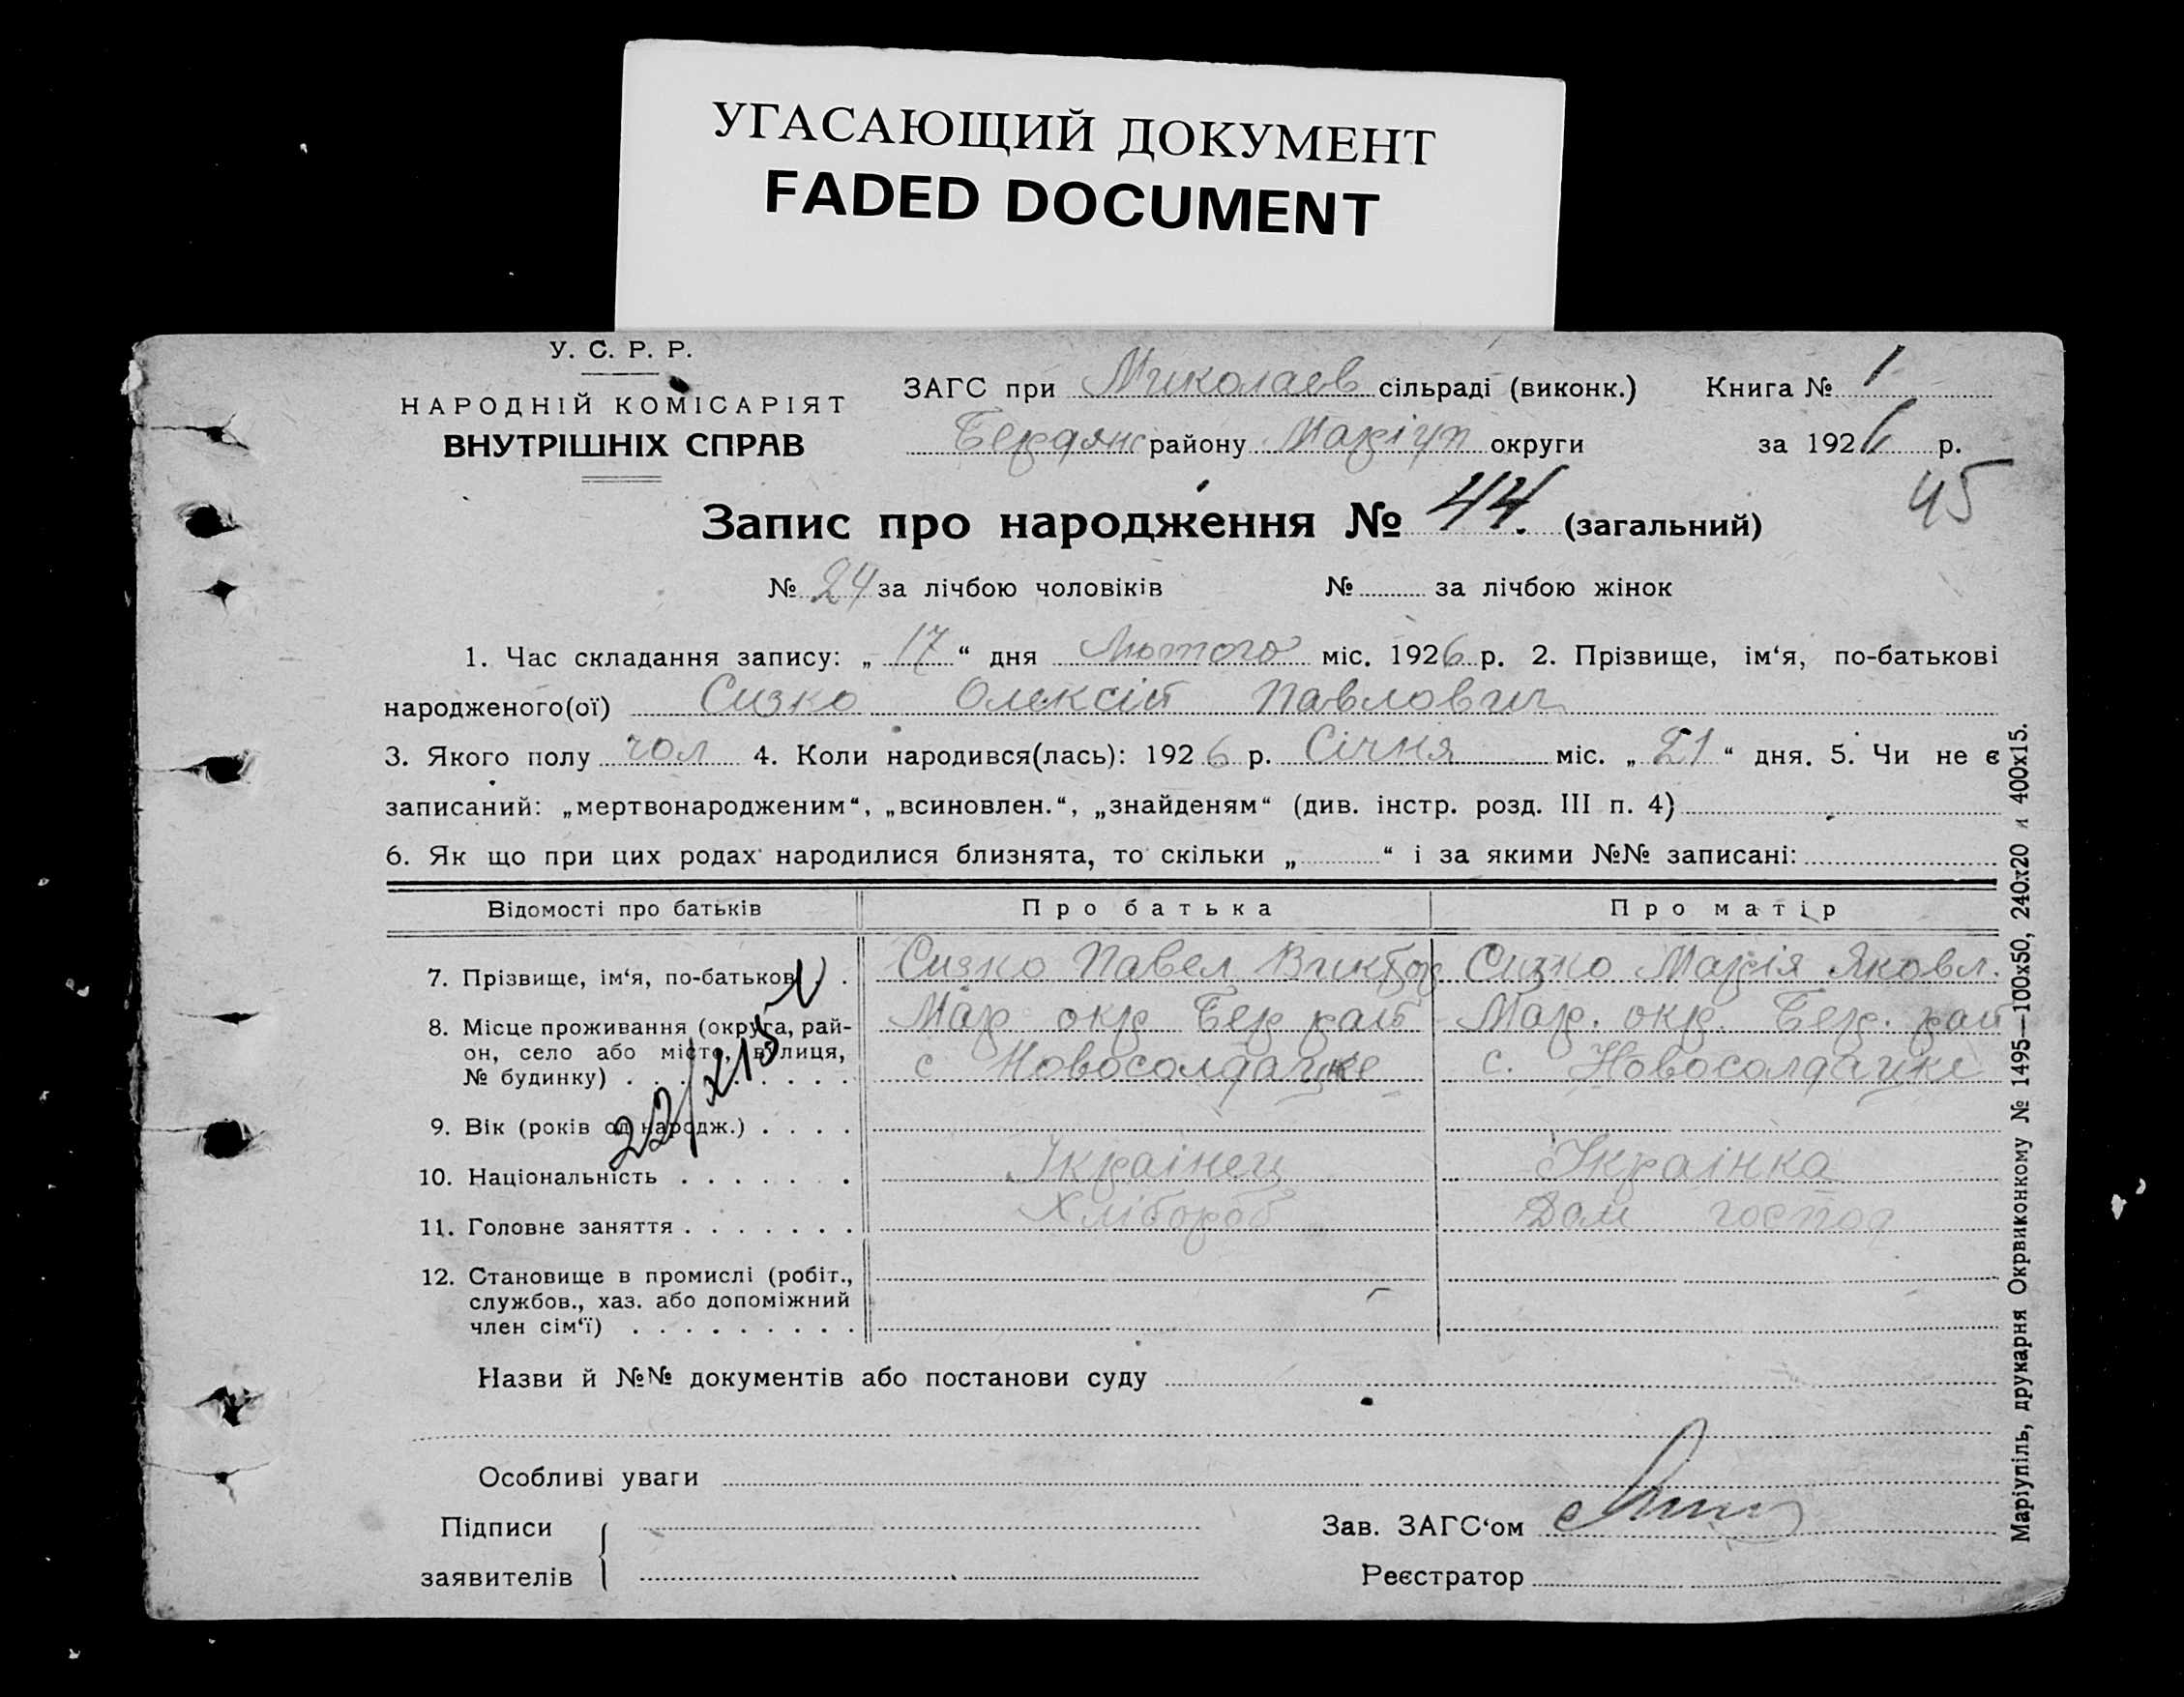 УГАСАЮЩИЙ ДОКУМЕНТ
FADED DOCUMENT
У. С. Р. Р.
НАРОДНІЙ КОМІСАРІЯТ
ВНУТРІШНІХ СПРАВ
ЗАГС при Миколаєв сільраді (виконк.) Книга № 1
Бердянс району Маріуп округи за 1926 р.
45
Запис про народження № 44. (загальний)
№ 24 за лічбою чоловіків № за лічбою жінок
1. Час складання запису: „ 17 “ дня Лютого міс. 1926 р. 2. Прізвище, ім‘я, по-батькові
народженого(ої) Сизко Олексій Павлович
3. Якого полу чол 4. Коли народився(лась): 1926 р. Січня міс. „ 21 “ дня. 5. Чи не є
записаний: „мертвонародженим“, „всиновлен.“, „знайденям“ (див. інстр. розд. III п. 4)
6. Як що при цих родах народилися близнята, то скільки „ “ і за якими №№ записані:
Відомості про батьків Про батька Про матір
7. Прізвище, ім‘я, по-батькові . . Сизко Павел Виктор Сизко Марія Яковл.
8. Місце проживання (округа, рай- Мар окр Бер рай Мар. окр. Бер. рай
он, село або місто, вулиця, с Новосолдацке с. Новосолдацке
№ будинку) . . . . . . . . .
9. Вік (років од народж.) . . . .
10. Національність . . . . . . . Україінец Украінка
11. Головне заняття . . . . . . . Хлібороб Дом господ
12. Становище в промислі (робіт.,
службов., хаз. або допоміжний
член сім‘ї) . . . . . . . . .
Назви й №№ документів або постанови суду
Особливі уваги
Підписи
заявителів
Зав. ЗАГС‘ом
Реєстратор
Маріупіль, друкарня Окрвиконкому № 1495—100х50, 240х20 и 400х15.